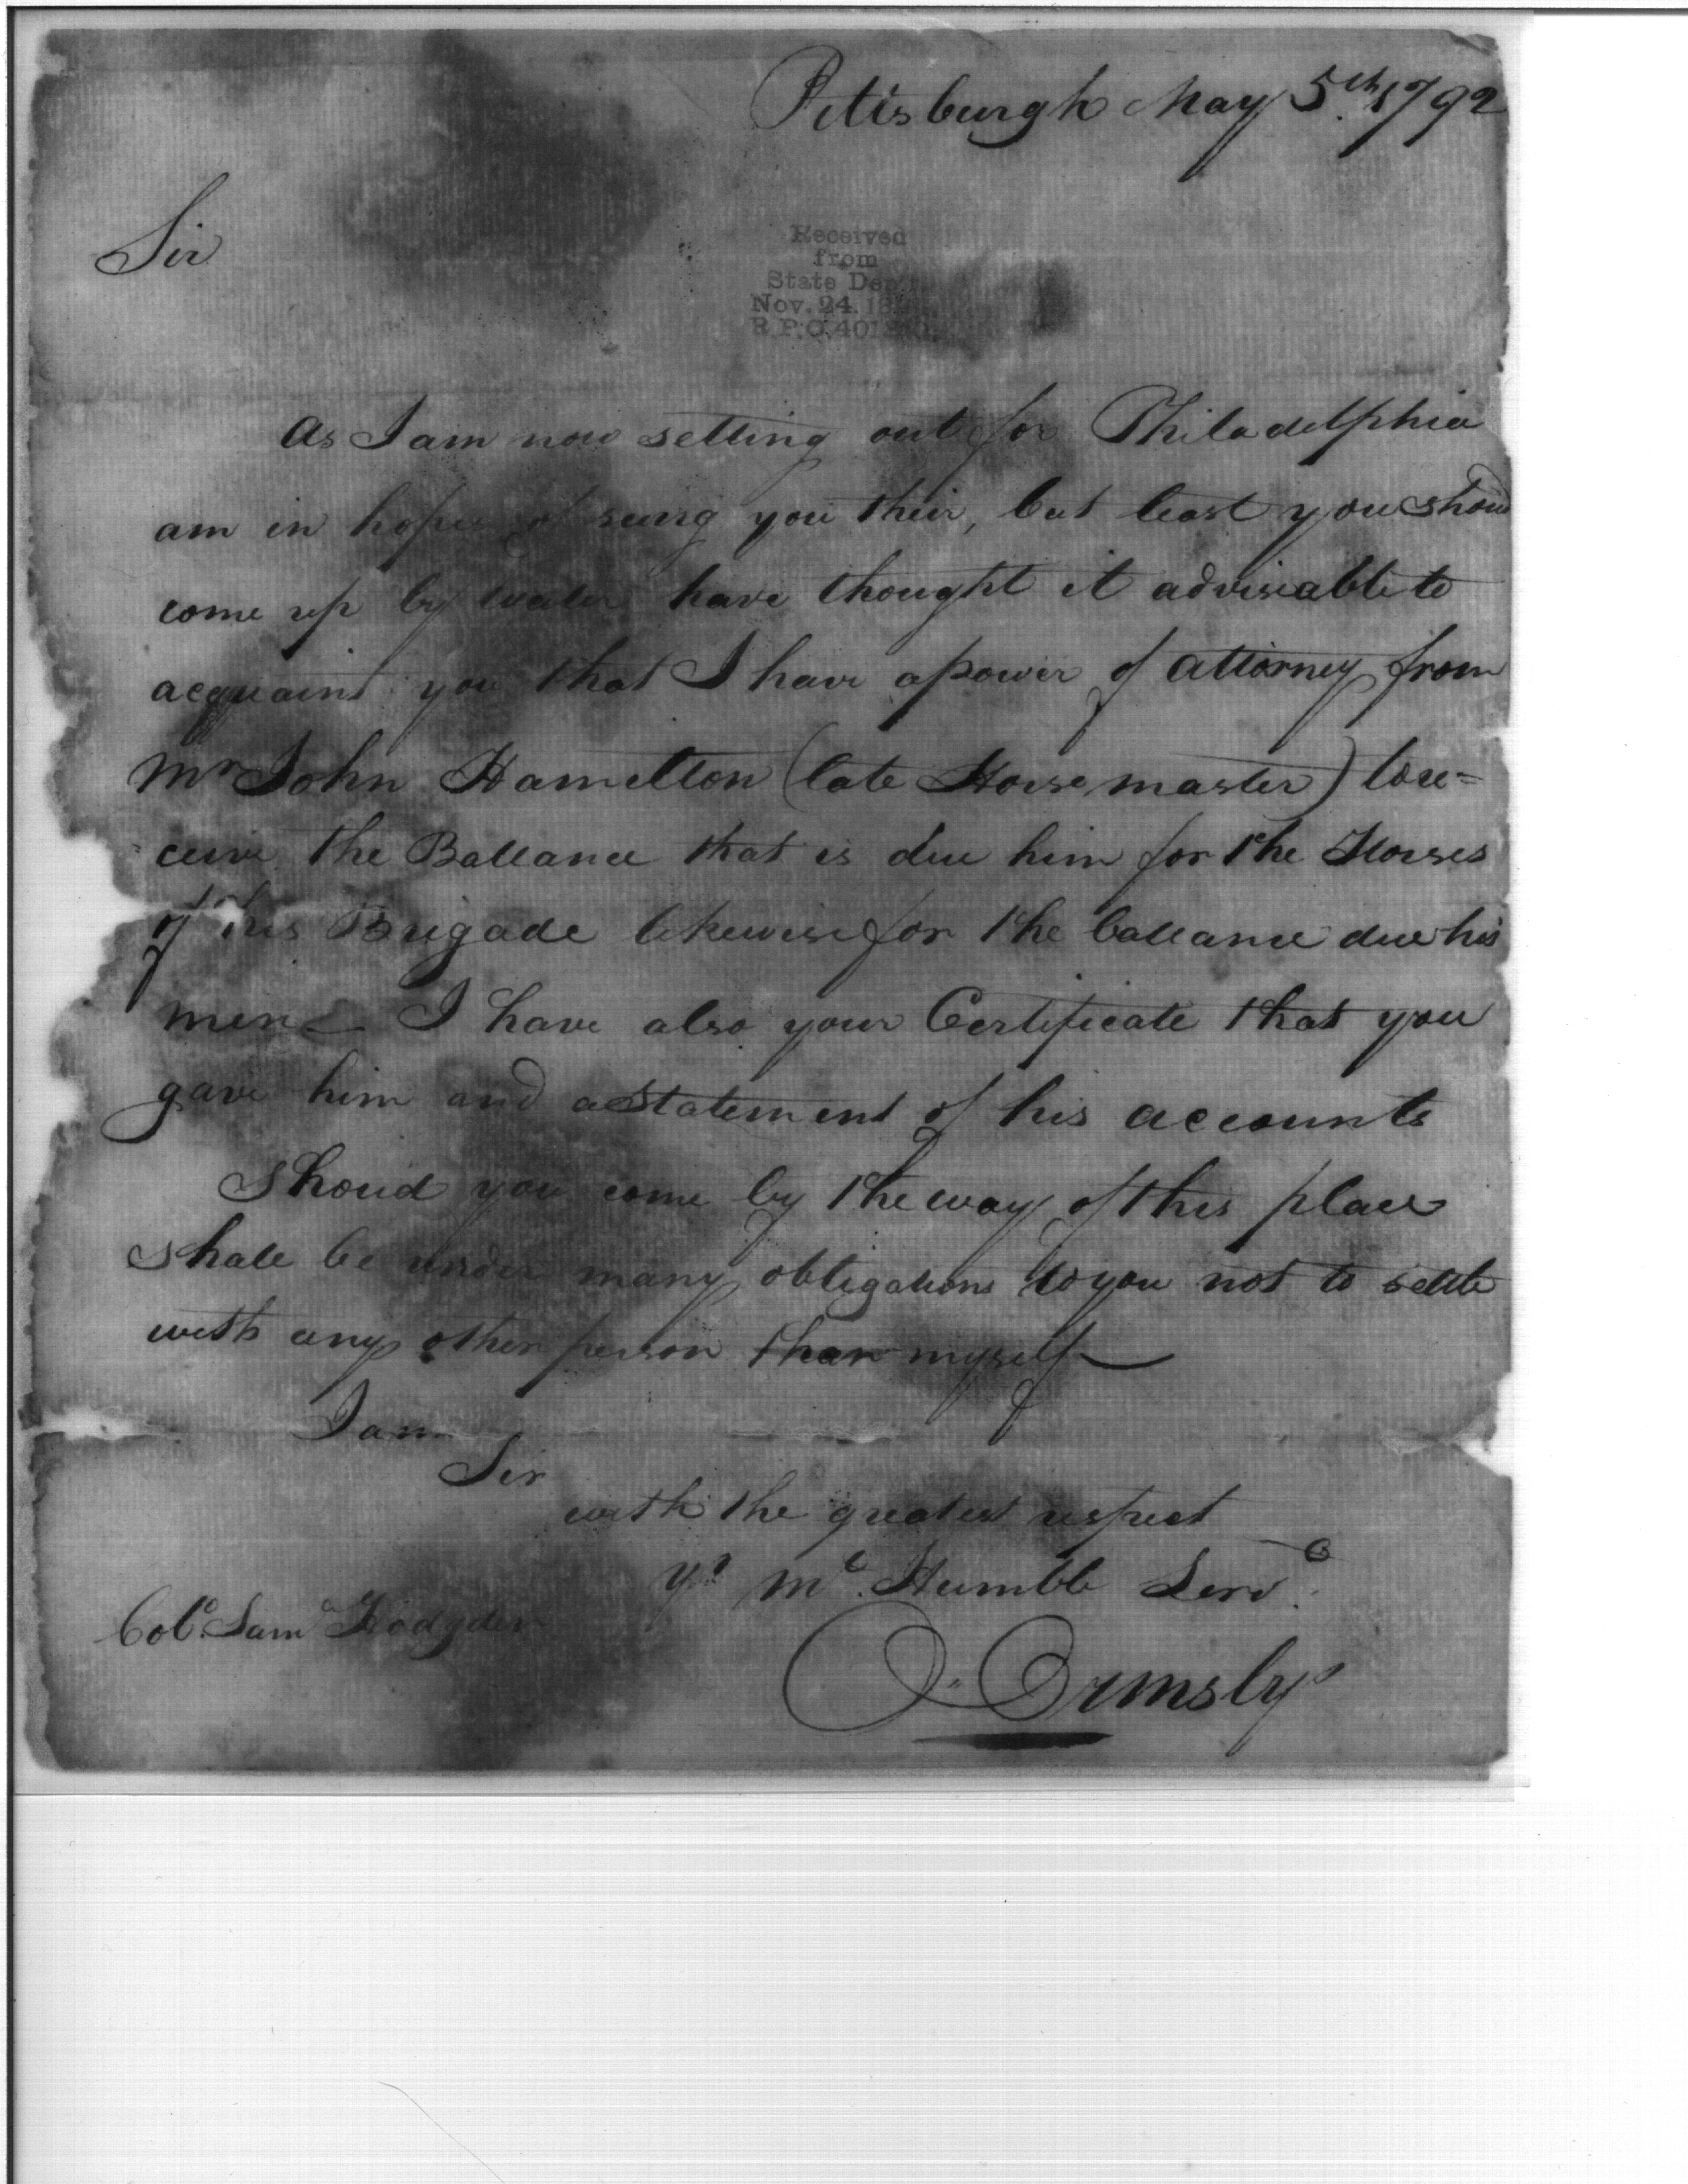 Pittsburgh May 5th. 1792
Sir
Received
from
State Dep
Nov. 24. 18
R.P.O. 401
As I am now setting out for Philadelphia
am in hopes of seeing you their, but least you shoud
come up by water have thought it adviseable to
acquaint you that I have a power of attorney from
Mr John Hamilton (late Horse master) to re=
ceive the Ballance that is due him for the Horses
of his Brigade likewise for the ballance due his
men — I have also your Certificate that you
gave him and a Statement of his accounts
Shoud you come by the way of this place
Shall be under many obligations to you not to settle
with any other person than myself —
I am
Sir
with the greatest respect
Yr. Mt. Humble Servt.
Colo. Saml Hodgden
O. Ormsby